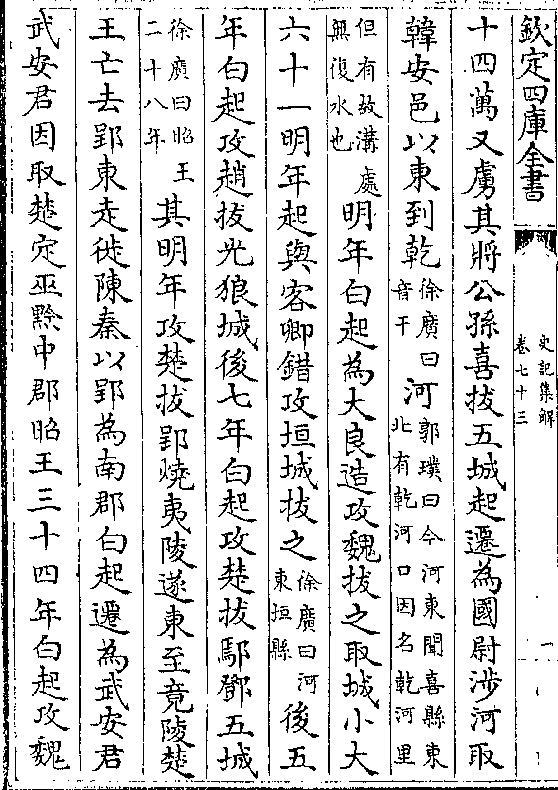 欽定四庫全書
史記集解
卷七十三
一
十四萬又虜其將公孫喜拔五城起遷為國尉涉河取
韓安邑以東到乾徐廣曰音干河郭璞曰今河東聞喜縣東北有乾河口因名乾河里
但有故溝處無復水也明年白起為大良造攻魏拔之取城小大
六十一明年起與客卿錯攻垣城拔之徐廣曰河東垣縣後五
年白起攻趙拔光狼城後七年白起攻楚拔鄢鄧五城
徐廣曰昭王二十八年其明年攻楚拔郢燒夷陵遂東至竟陵楚
王亡去郢東走徙陳秦以郢為南郡白起遷為武安君
武安君因取楚定巫黔中郡昭王三十四年白起攻魏